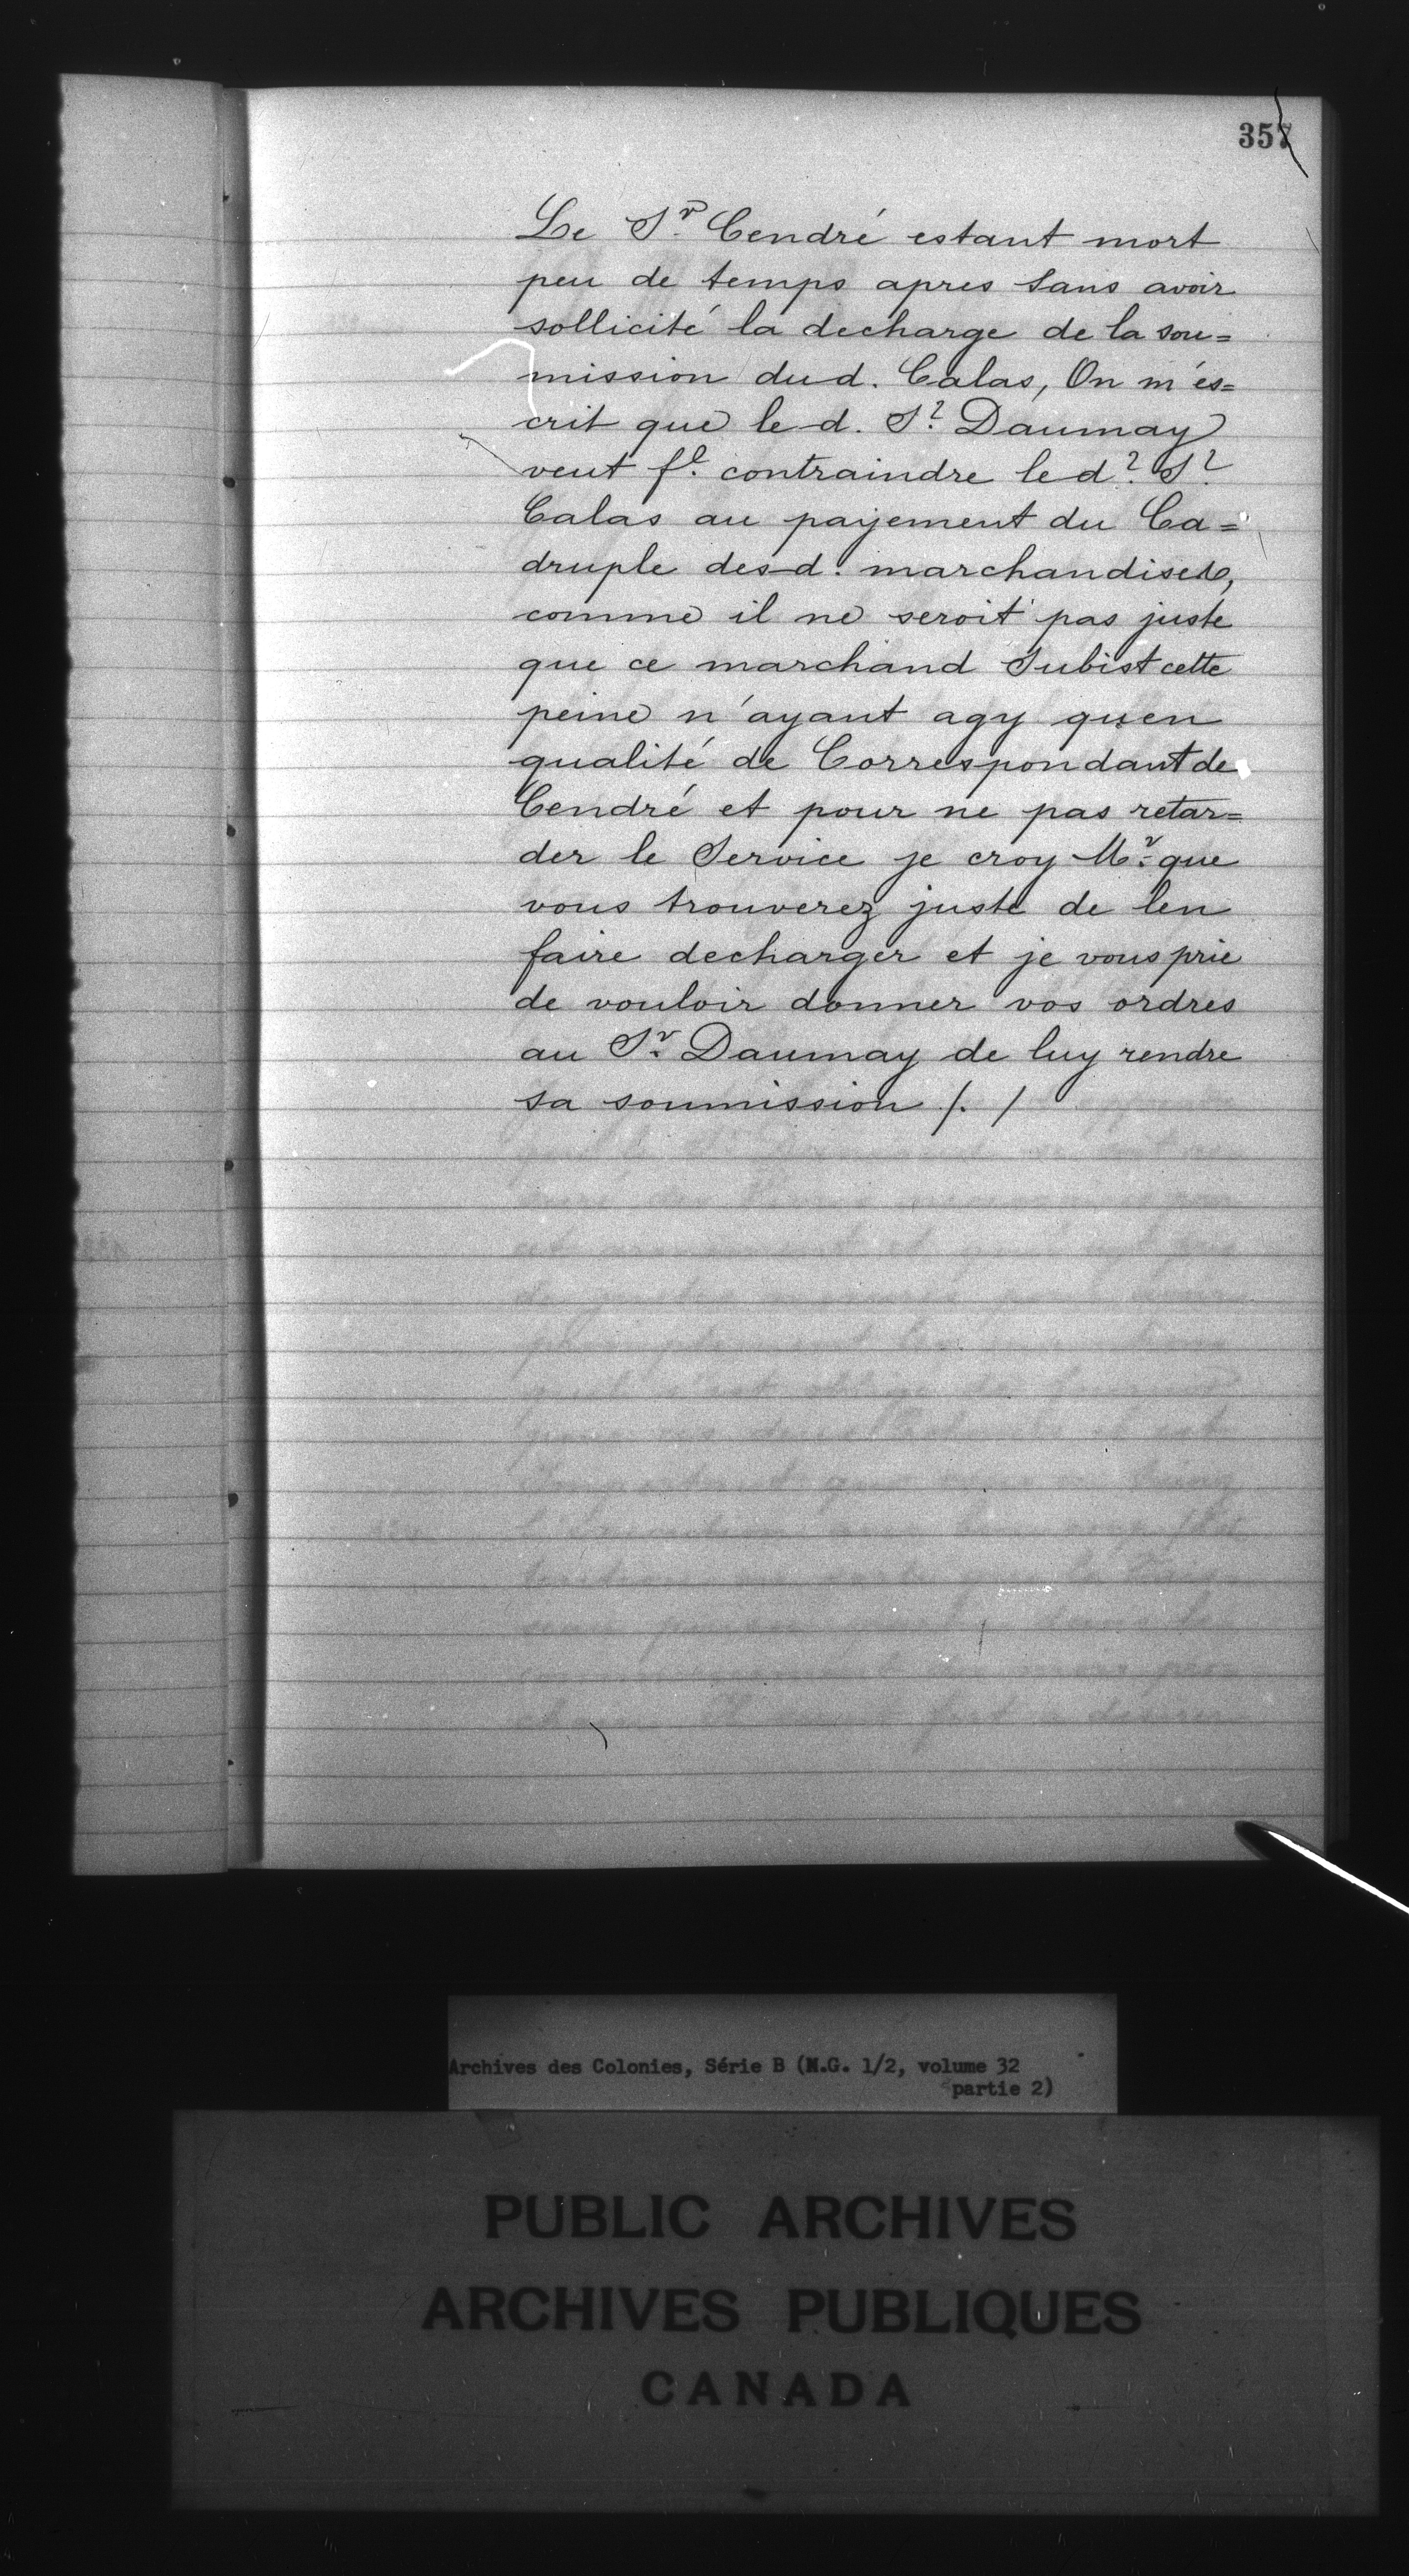 357
Le Sr. Cendré estant mort
peu de temps apres sans avoir
sollicité la decharge de la sou=
mission dud. Calas, On m'es=
crit que led. Sr. Daumay
veut fe. contraindre led? Sr.
Calas au payement du Ca=
druple desd. marchandises,
comme il ne seroit pas juste
que ce marchand Subist cette
peine n'ayant agy qu'en
qualité de Correspondant de
Cendré et pour ne pas retar=
der le Service je croy Mr. que
vous trouverez juste de len
faire decharger et je vous prie
de vouloir donner vos ordres
au Sr. Daumay de luy rendre
sa soumission /. /
Archives des Colonies, Série B (N.G. 1/2, volume 32
partie 2)
PUBLIC ARCHIVES
ARCHIVES PUBLIQUES
CANADA